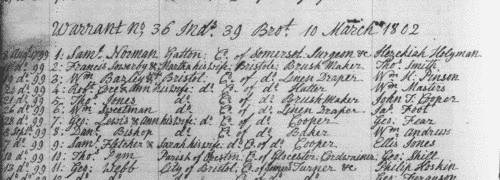 Warrant no. 36 Indr. 39 Brot. 10 March 1802
1: Saml. Norman Yatton Co. of Somerset Surgeon & Hezekiah Holyman
do. 99 2: Francis Inserby & Martha his wife: Bristol: Brush Maker Thos. Smith
do. 99 3: Wm. Bazley & Bristol Co. of do. Linen Draper Wm. K: Pinson
do. 99 4: Robt. & Ann his wife: do. of do. Hatter Wm. Masters
do. 99 5: Thos. Jones do. of do. Brush Maker John T. Cooper
do. 99 6: Wm. Sweetman do. of do. Linen Draper Jas. Foot
do. 99 7: Geo: Lewis & Ann his wife: do. of do. Cooper Geo: Fear
do. 99 8: Danl. Bishop do. of do. Baker Wm. Andrews
7 do. 99 9: Saml. Fletcher & Sarah his wife: do. Co. of do. Cooper Ellis Jones
10 do. 99 10: Thos. Pym Parish of Weston Co. of Glocester: Cordwainer: Geo: Shill
13 do. 99 11: Geo: Webb City of Bristol, Co. of Turner &c. Philip Hoskin
do. of do. Geo: Ferguson